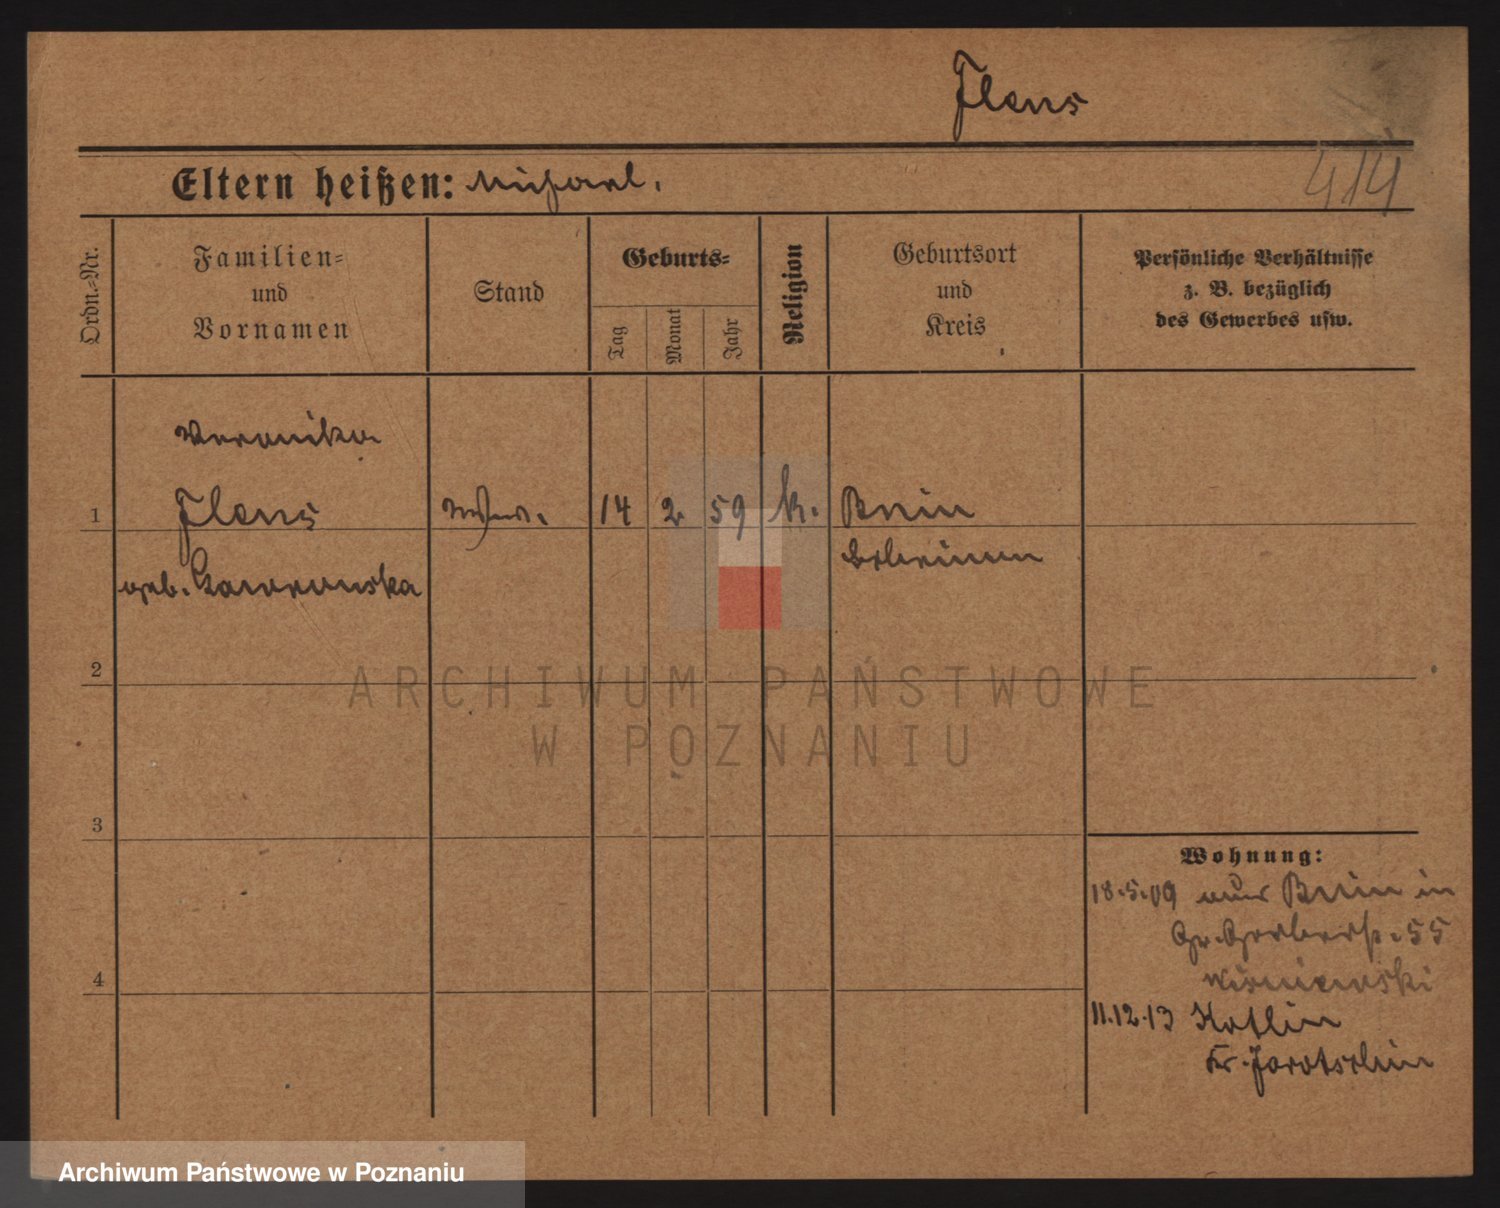 Flens
414
Eltern heißen: Michael.
Ordn.-Nr.
Familien=
und
Vornamen
Stand
Geburts=
Tag
Monat
Jahr
Religion
Geburtsort
und
Kreis
Persönliche Verhältnisse
z. B. bezüglich
des Gewerbes usw.
Veronika
1 Flens 14 2 59 k. Bnin
geb. Gawronska Schrimm
2
3
4
Wohnung:
18.5.09 aus Bnin in
Gr. Gerberstr. 55
Wisniewski
11.12.13 Kotlin
Kr. Jarotschin
ARCHIWUM PAŃSTWOWE
W POZNANIU
Archiwum Państwowe w Poznaniu